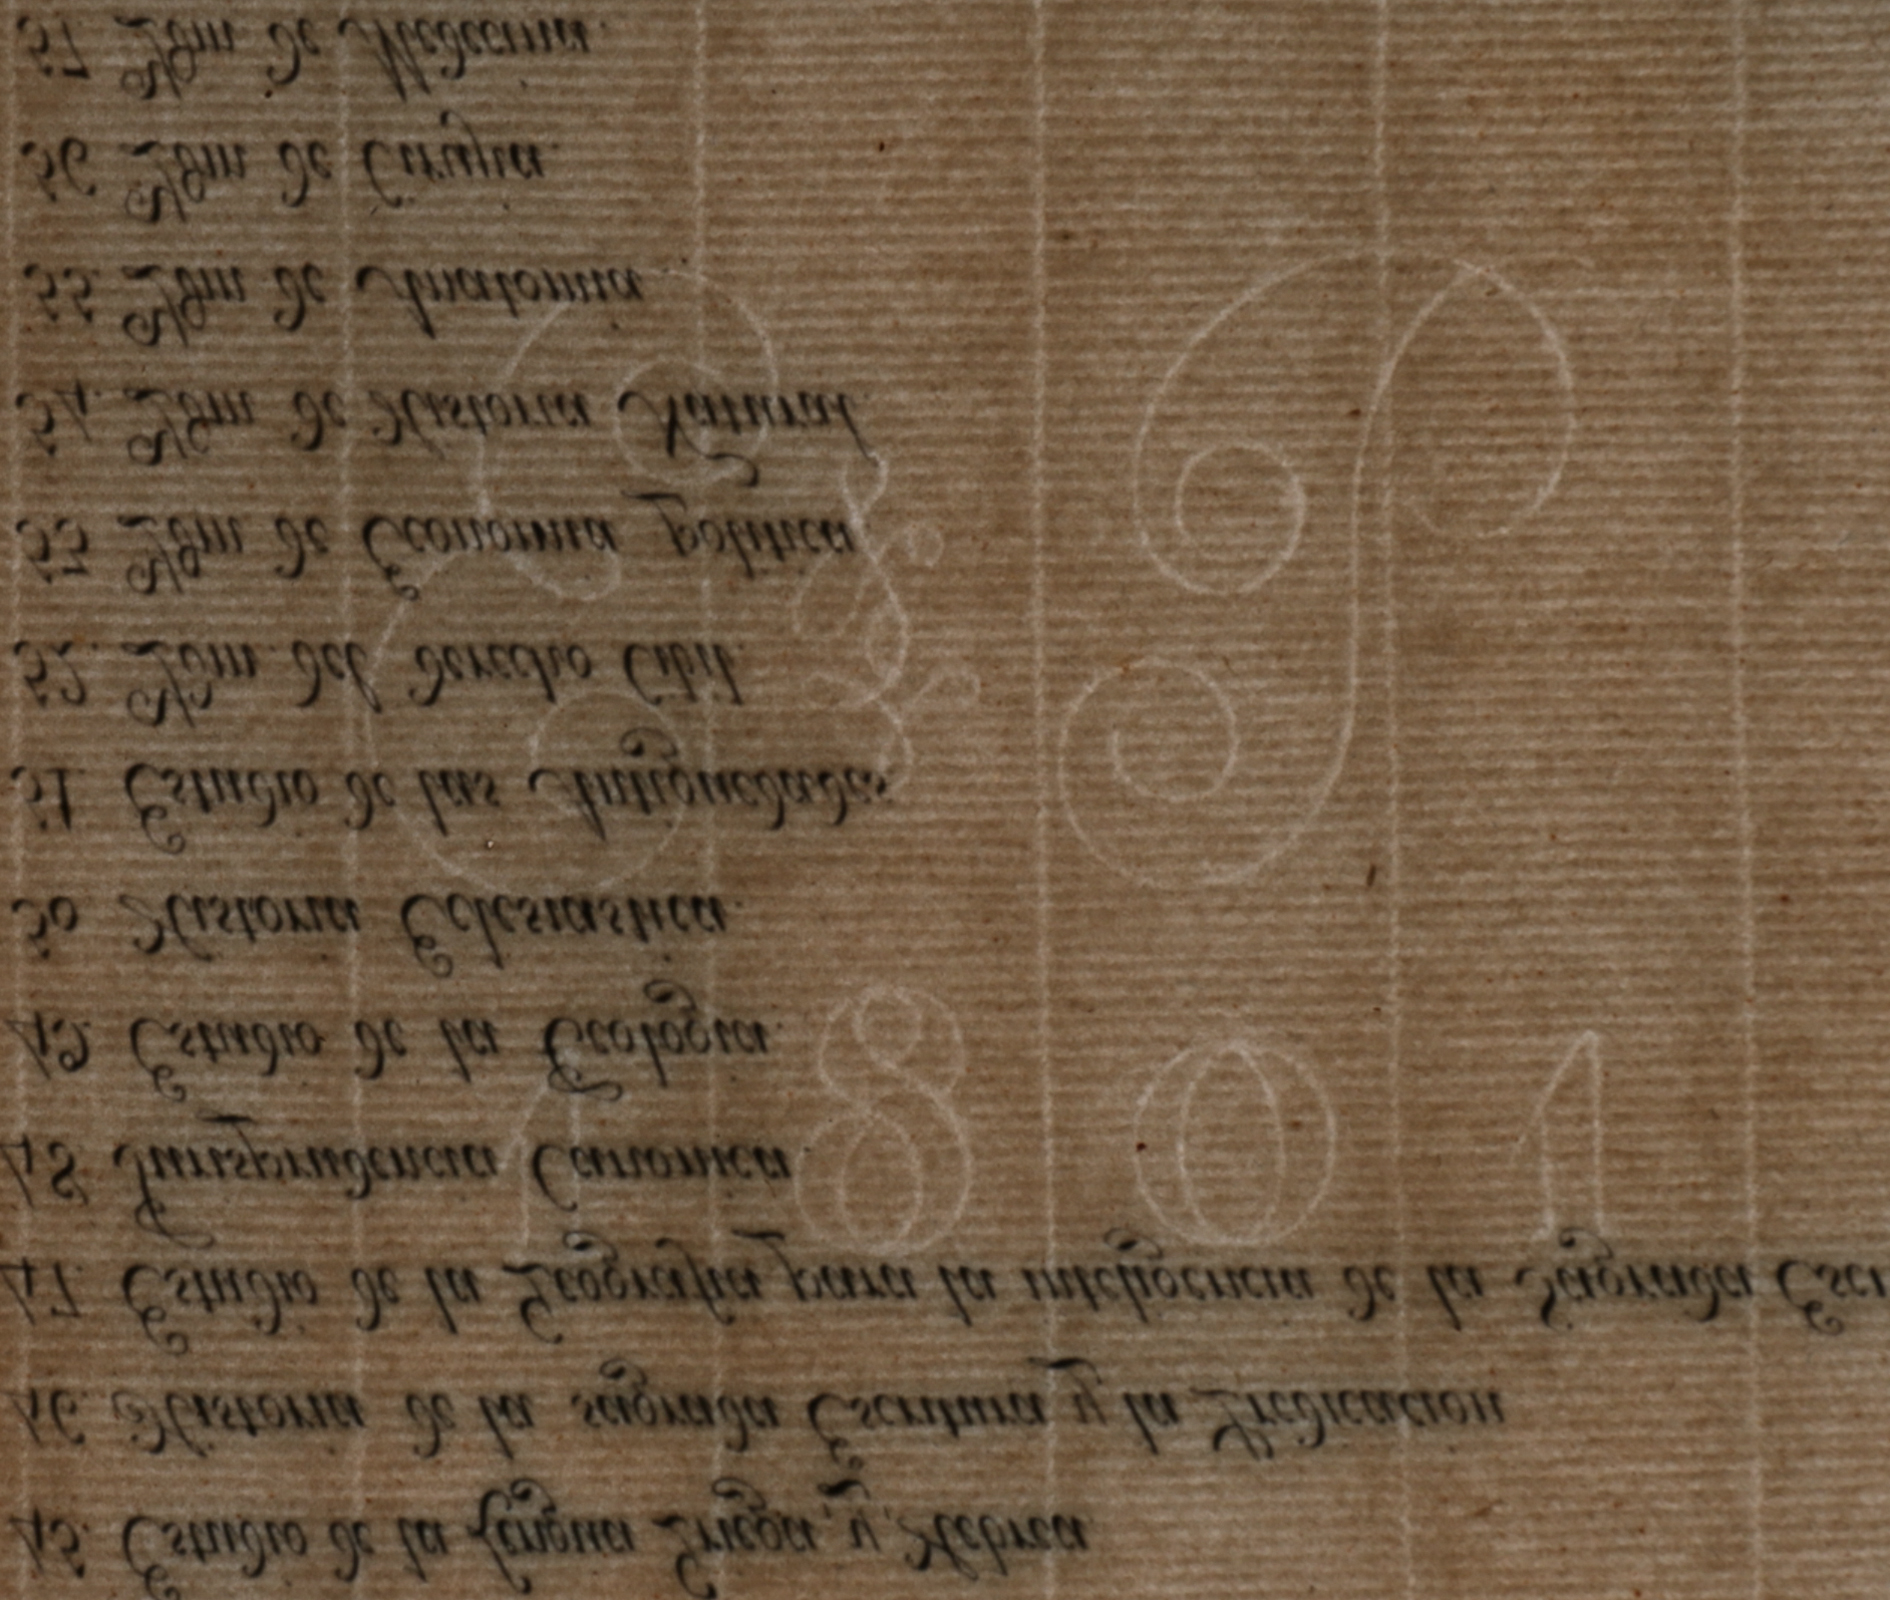 45. Estudio de la Lengua Griega, y Hebrea
46. Historia de la sagrada Escritura y la Predicacion
47. Estudio de la Geografia para la inteligencia de la Sagrada Escr
48. Jurisprudencia Canonica
49. Estudio de la Teologia.
50. Historia Eclesiastica.
51. Estudio de las Antiguedades
52. Ydm. del Derecho Cibil.
53. Ydm de Economia politica.
54. Ydm de Historia Natural.
55. Ydm de Anatomia
56. Ydm de Cirujia.
57. Ydm de Medecina.
E & J
1801